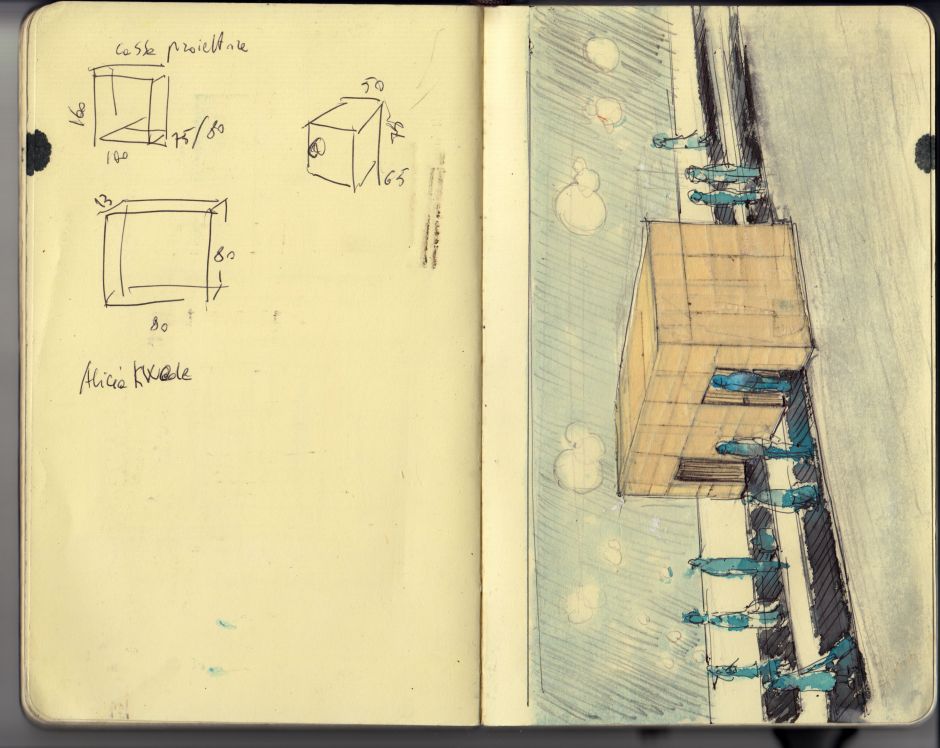 casse proiettore
160
100
75/80
50
75
65
13
80
80
Alicia Kwade